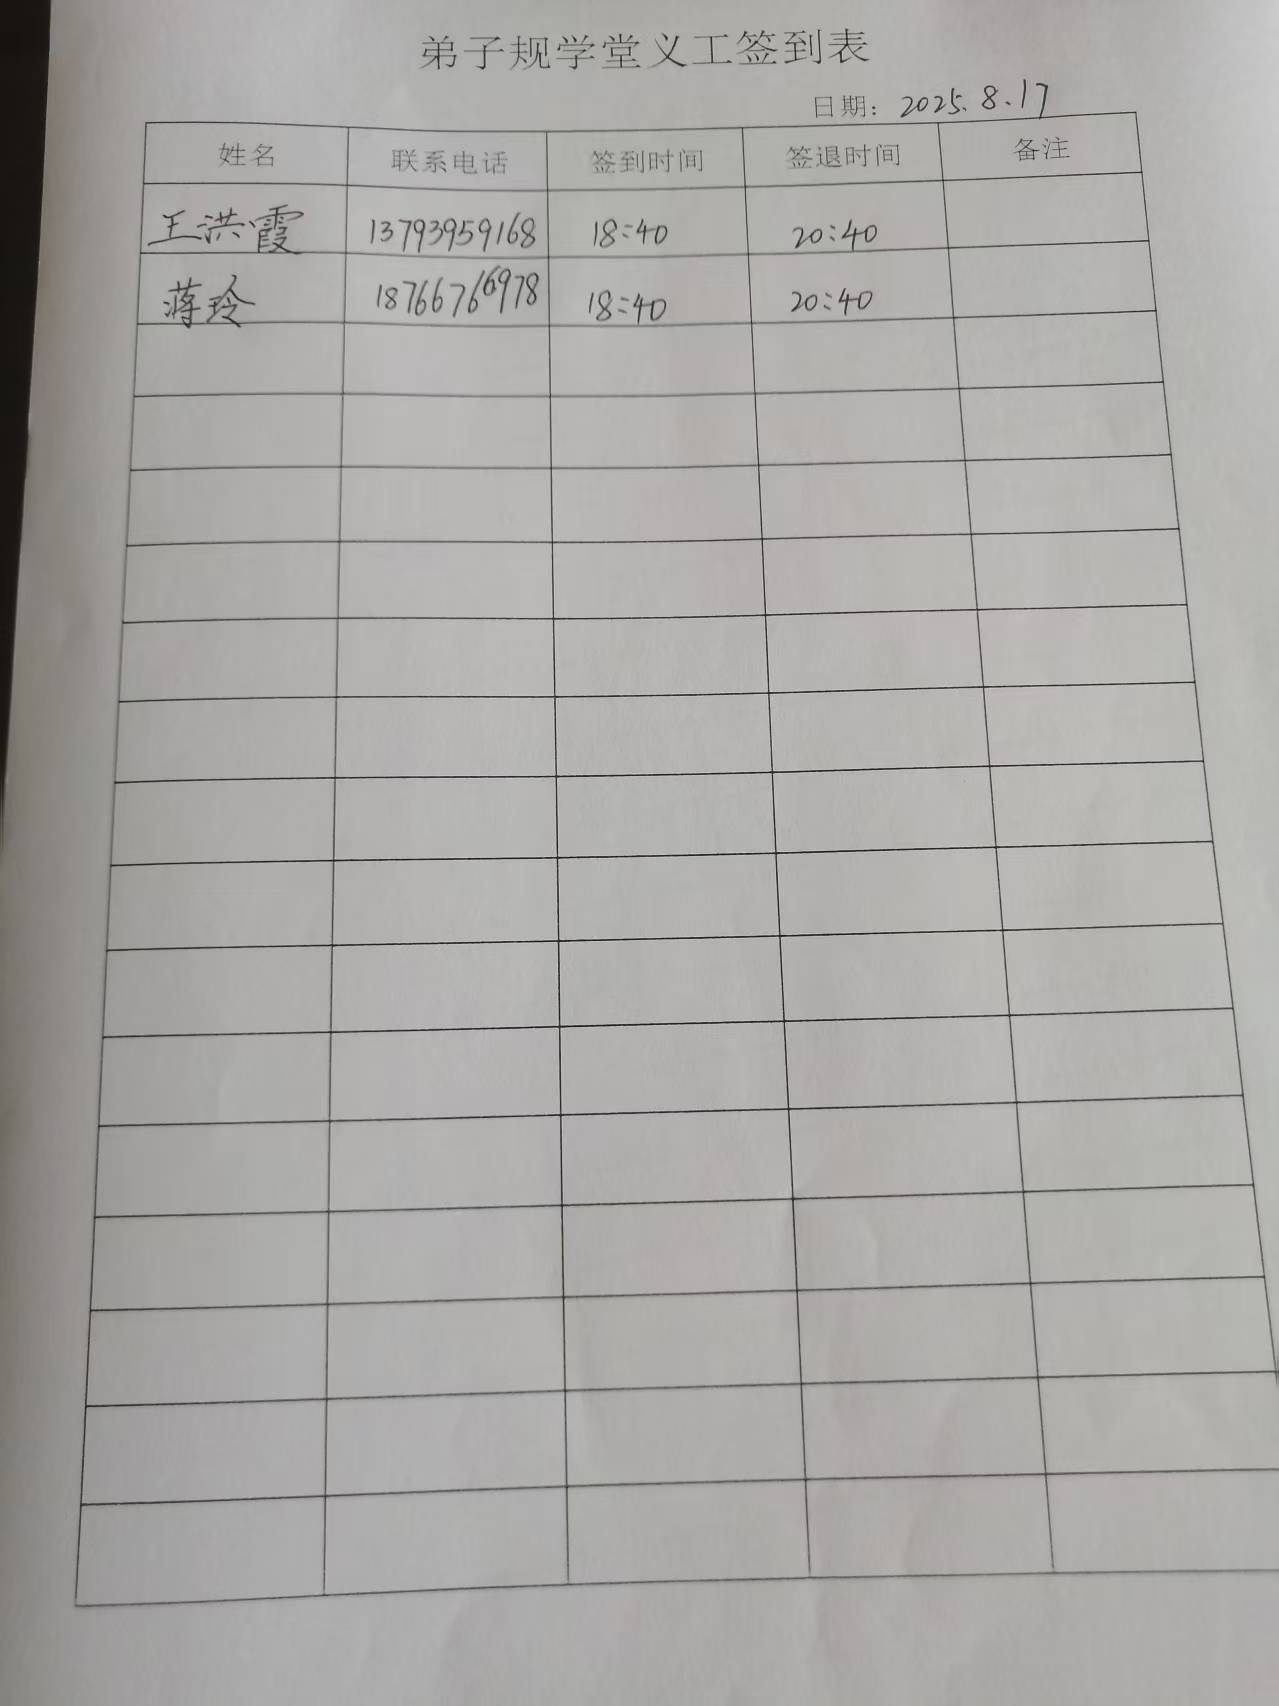 弟子规学堂义工签到表
日期：2025.8.17
姓名 联系电话 签到时间 签退时间 备注
王洪霞 13793959168 18:40 20:40
蒋玲 18766766978 18:40 20:40